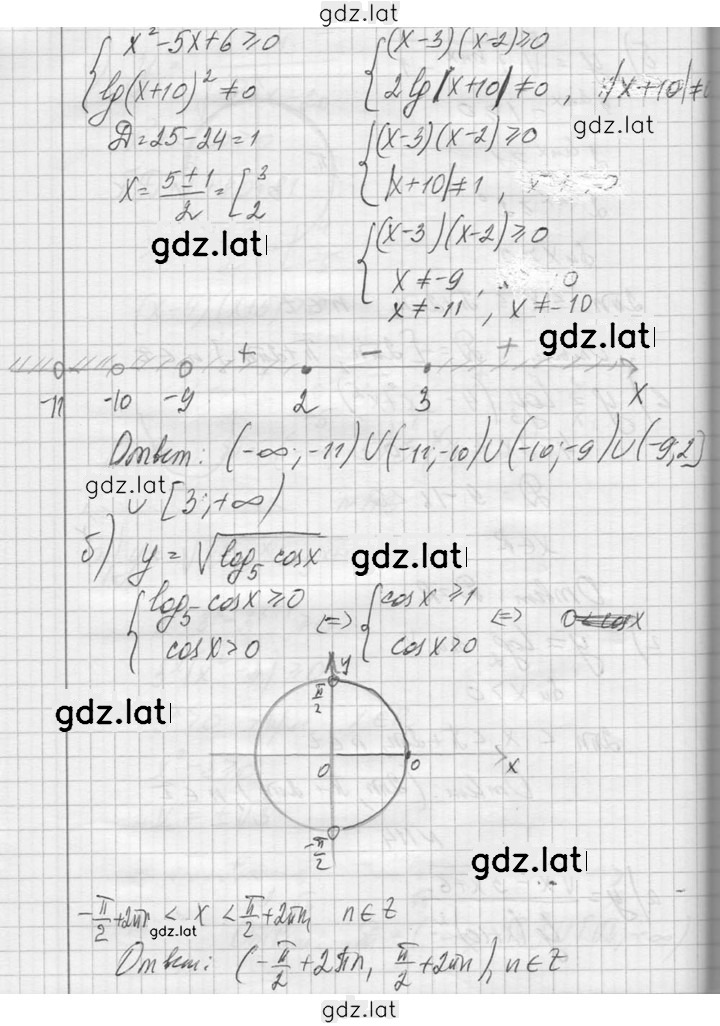 gdz.lat
{ x² - 5x + 6 ⩾ 0
lg(x+10)² ≠ 0
Д = 25 - 24 = 1
x = (5 ± 1)/2 = [ 3
2
{ (x-3)(x-2) ⩾ 0
2 lg|x+10| ≠ 0 , |x+10| ≠
gdz.lat
{ (x-3)(x-2) ⩾ 0
|x+10| ≠ 1 ,
gdz.lat
{ (x-3)(x-2) ⩾ 0
x ≠ -9 ,
x ≠ -11 , x ≠ -10
gdz.lat
+ - +
-11 -10 -9 2 3 x
Ответ: (-∞; -11) ∪ (-11; -10) ∪ (-10; -9) ∪ (-9; 2]
gdz.lat
∪ [3; +∞)
б) y = √(log₅ cosx)
gdz.lat
{ log₅ cosx ⩾ 0
cosx > 0
⇔ { cosx ⩾ 1
cosx > 0
⇔ 0 < cosx
y
π/2
gdz.lat
0 0 x
-π/2
gdz.lat
-π/2 + 2πn < x < π/2 + 2πn, n ∈ Z
gdz.lat
Ответ: (-π/2 + 2πn, π/2 + 2πn), n ∈ Z
gdz.lat